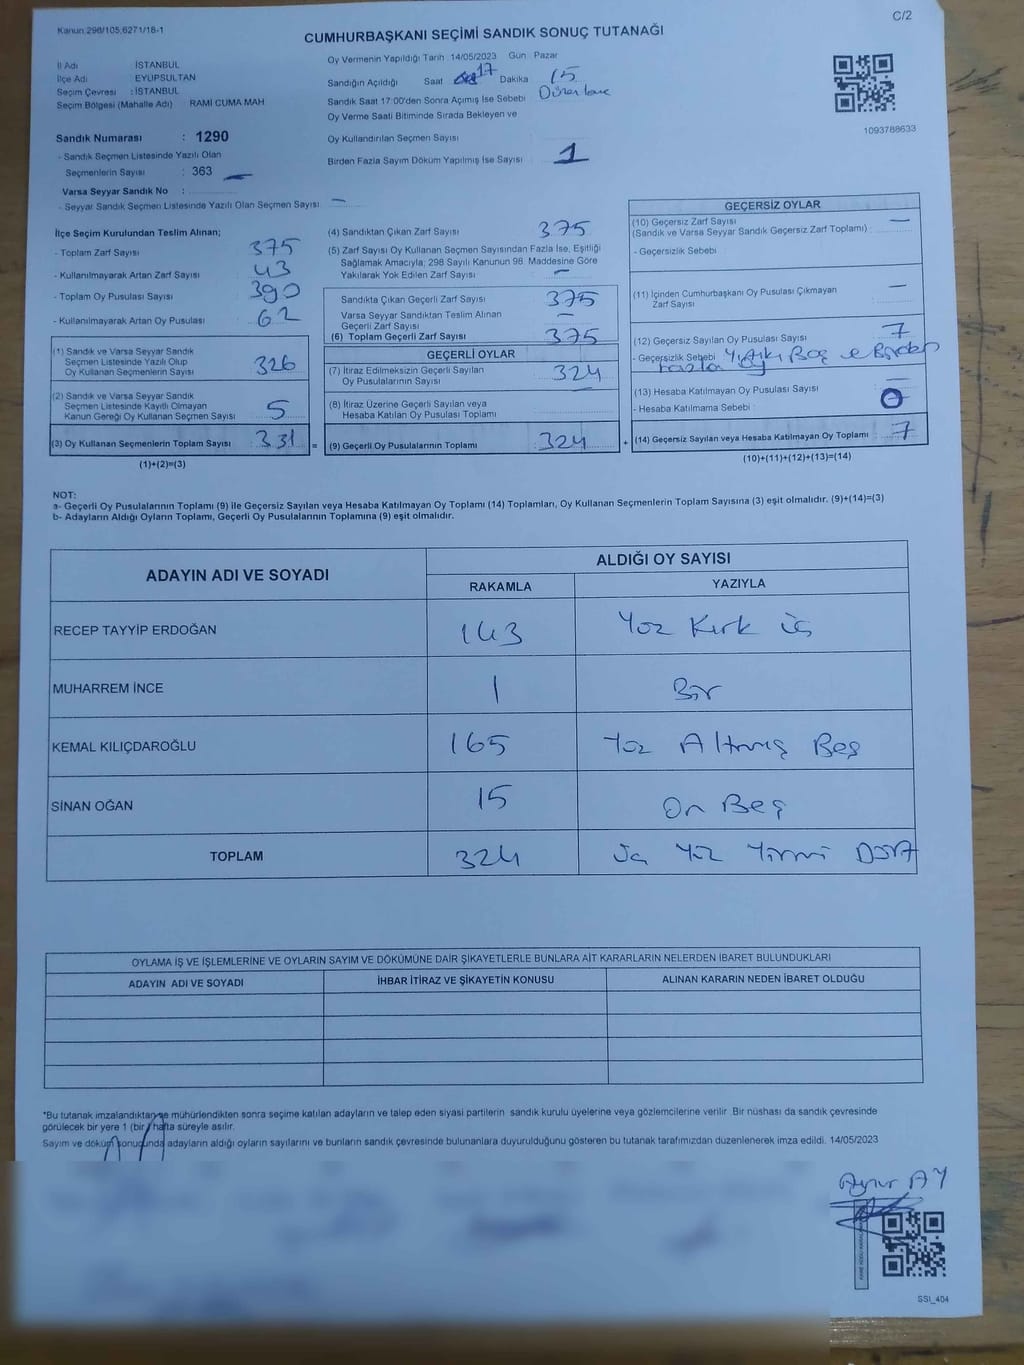 Kanun 298/105,6271/18-1
C/2
CUMHURBAŞKANI SEÇİMİ SANDIK SONUÇ TUTANAĞI
İl Adı : İSTANBUL
İlçe Adı : EYÜPSULTAN
Seçim Çevresi : İSTANBUL
Seçim Bölgesi (Mahalle Adı) : RAMİ CUMA MAH
Sandık Numarası : 1290
- Sandık Seçmen Listesinde Yazılı Olan
Seçmenlerin Sayısı : 363
Varsa Seyyar Sandık No :
- Seyyar Sandık Seçmen Listesinde Yazılı Olan Seçmen Sayısı : —
Oy Vermenin Yapıldığı Tarih 14/05/2023 Gün Pazar
Sandığın Açıldığı Saat 17 Dakika 15
Sandık Saat 17:00'den Sonra Açımış İse Sebebi
Oy Verme Saati Bitiminde Sırada Bekleyen ve
Oy Kullandırılan Seçmen Sayısı
Birden Fazla Sayım Döküm Yapılmış İse Sayısı 1
1093788633
İlçe Seçim Kurulundan Teslim Alınan;
- Toplam Zarf Sayısı 375
- Kullanılmayarak Artan Zarf Sayısı 43
- Toplam Oy Pusulası Sayısı 390
- Kullanılmayarak Artan Oy Pusulası 62
(1) Sandık ve Varsa Seyyar Sandık
Seçmen Listesinde Yazılı Olup
Oy Kullanan Seçmenlerin Sayısı 326
(2) Sandık ve Varsa Seyyar Sandık
Seçmen Listesinde Kayıtlı Olmayan
Kanun Gereği Oy Kullanan Seçmen Sayısı 5
(3) Oy Kullanan Seçmenlerin Toplam Sayısı 331 =
(1)+(2)=(3)
(4) Sandıktan Çıkan Zarf Sayısı 375
(5) Zarf Sayısı Oy Kullanan Seçmen Sayısından Fazla İse, Eşitliği
Sağlamak Amacıyla; 298 Sayılı Kanunun 98. Maddesine Göre
Yakılarak Yok Edilen Zarf Sayısı —
Sandıkta Çıkan Geçerli Zarf Sayısı 375
Varsa Seyyar Sandıktan Teslim Alınan
Geçerli Zarf Sayısı —
(6) Toplam Geçerli Zarf Sayısı 375
GEÇERLİ OYLAR
(7) İtiraz Edilmeksizin Geçerli Sayılan
Oy Pusulalarının Sayısı 324
(8) İtiraz Üzerine Geçerli Sayılan veya
Hesaba Katılan Oy Pusulası Toplamı
(9) Geçerli Oy Pusulalarının Toplamı : 324 +
GEÇERSİZ OYLAR
(10) Geçersiz Zarf Sayısı —
(Sandık ve Varsa Seyyar Sandık Geçersiz Zarf Toplamı)
- Geçersizlik Sebebi
(11) İçinden Cumhurbaşkanı Oy Pusulası Çıkmayan —
Zarf Sayısı
(12) Geçersiz Sayılan Oy Pusulası Sayısı 7
- Geçersizlik Sebebi Boş ve Birden
fazla oy
(13) Hesaba Katılmayan Oy Pusulası Sayısı —
- Hesaba Katılmama Sebebi
(14) Geçersiz Sayılan veya Hesaba Katılmayan Oy Toplamı 7
(10)+(11)+(12)+(13)=(14)
NOT:
a- Geçerli Oy Pusulalarının Toplamı (9) ile Geçersiz Sayılan veya Hesaba Katılmayan Oy Toplamı (14) Toplamları, Oy Kullanan Seçmenlerin Toplam Sayısına (3) eşit olmalıdır. (9)+(14)=(3)
b- Adayların Aldığı Oyların Toplamı, Geçerli Oy Pusulalarının Toplamına (9) eşit olmalıdır.
ADAYIN ADI VE SOYADI
ALDIĞI OY SAYISI
RAKAMLA YAZIYLA
RECEP TAYYİP ERDOĞAN 143 Yüz Kırk üç
MUHARREM İNCE 1 Bir
KEMAL KILIÇDAROĞLU 165 Yüz Altmış Beş
SİNAN OĞAN 15 On Beş
TOPLAM 324 üç Yüz Yirmi Dört
OYLAMA İŞ VE İŞLEMLERİNE VE OYLARIN SAYIM VE DÖKÜMÜNE DAİR ŞİKAYETLERLE BUNLARA AİT KARARLARIN NELERDEN İBARET BULUNDUKLARI
ADAYIN ADI VE SOYADI İHBAR İTİRAZ VE ŞİKAYETİN KONUSU ALINAN KARARIN NEDEN İBARET OLDUĞU
*Bu tutanak imzalandıktan ve mühürlendikten sonra seçime katılan adayların ve talep eden siyasi partilerin sandık kurulu üyelerine veya gözlemcilerine verilir. Bir nüshası da sandık çevresinde
görülecek bir yere 1 (bir) hafta süreyle asılır.
Sayım ve döküm sonucunda adayların aldığı oyların sayılarını ve bunların sandık çevresinde bulunanlara duyurulduğunu gösteren bu tutanak tarafımızdan düzenlenerek imza edildi. 14/05/2023
Aynur AY
SSI_404